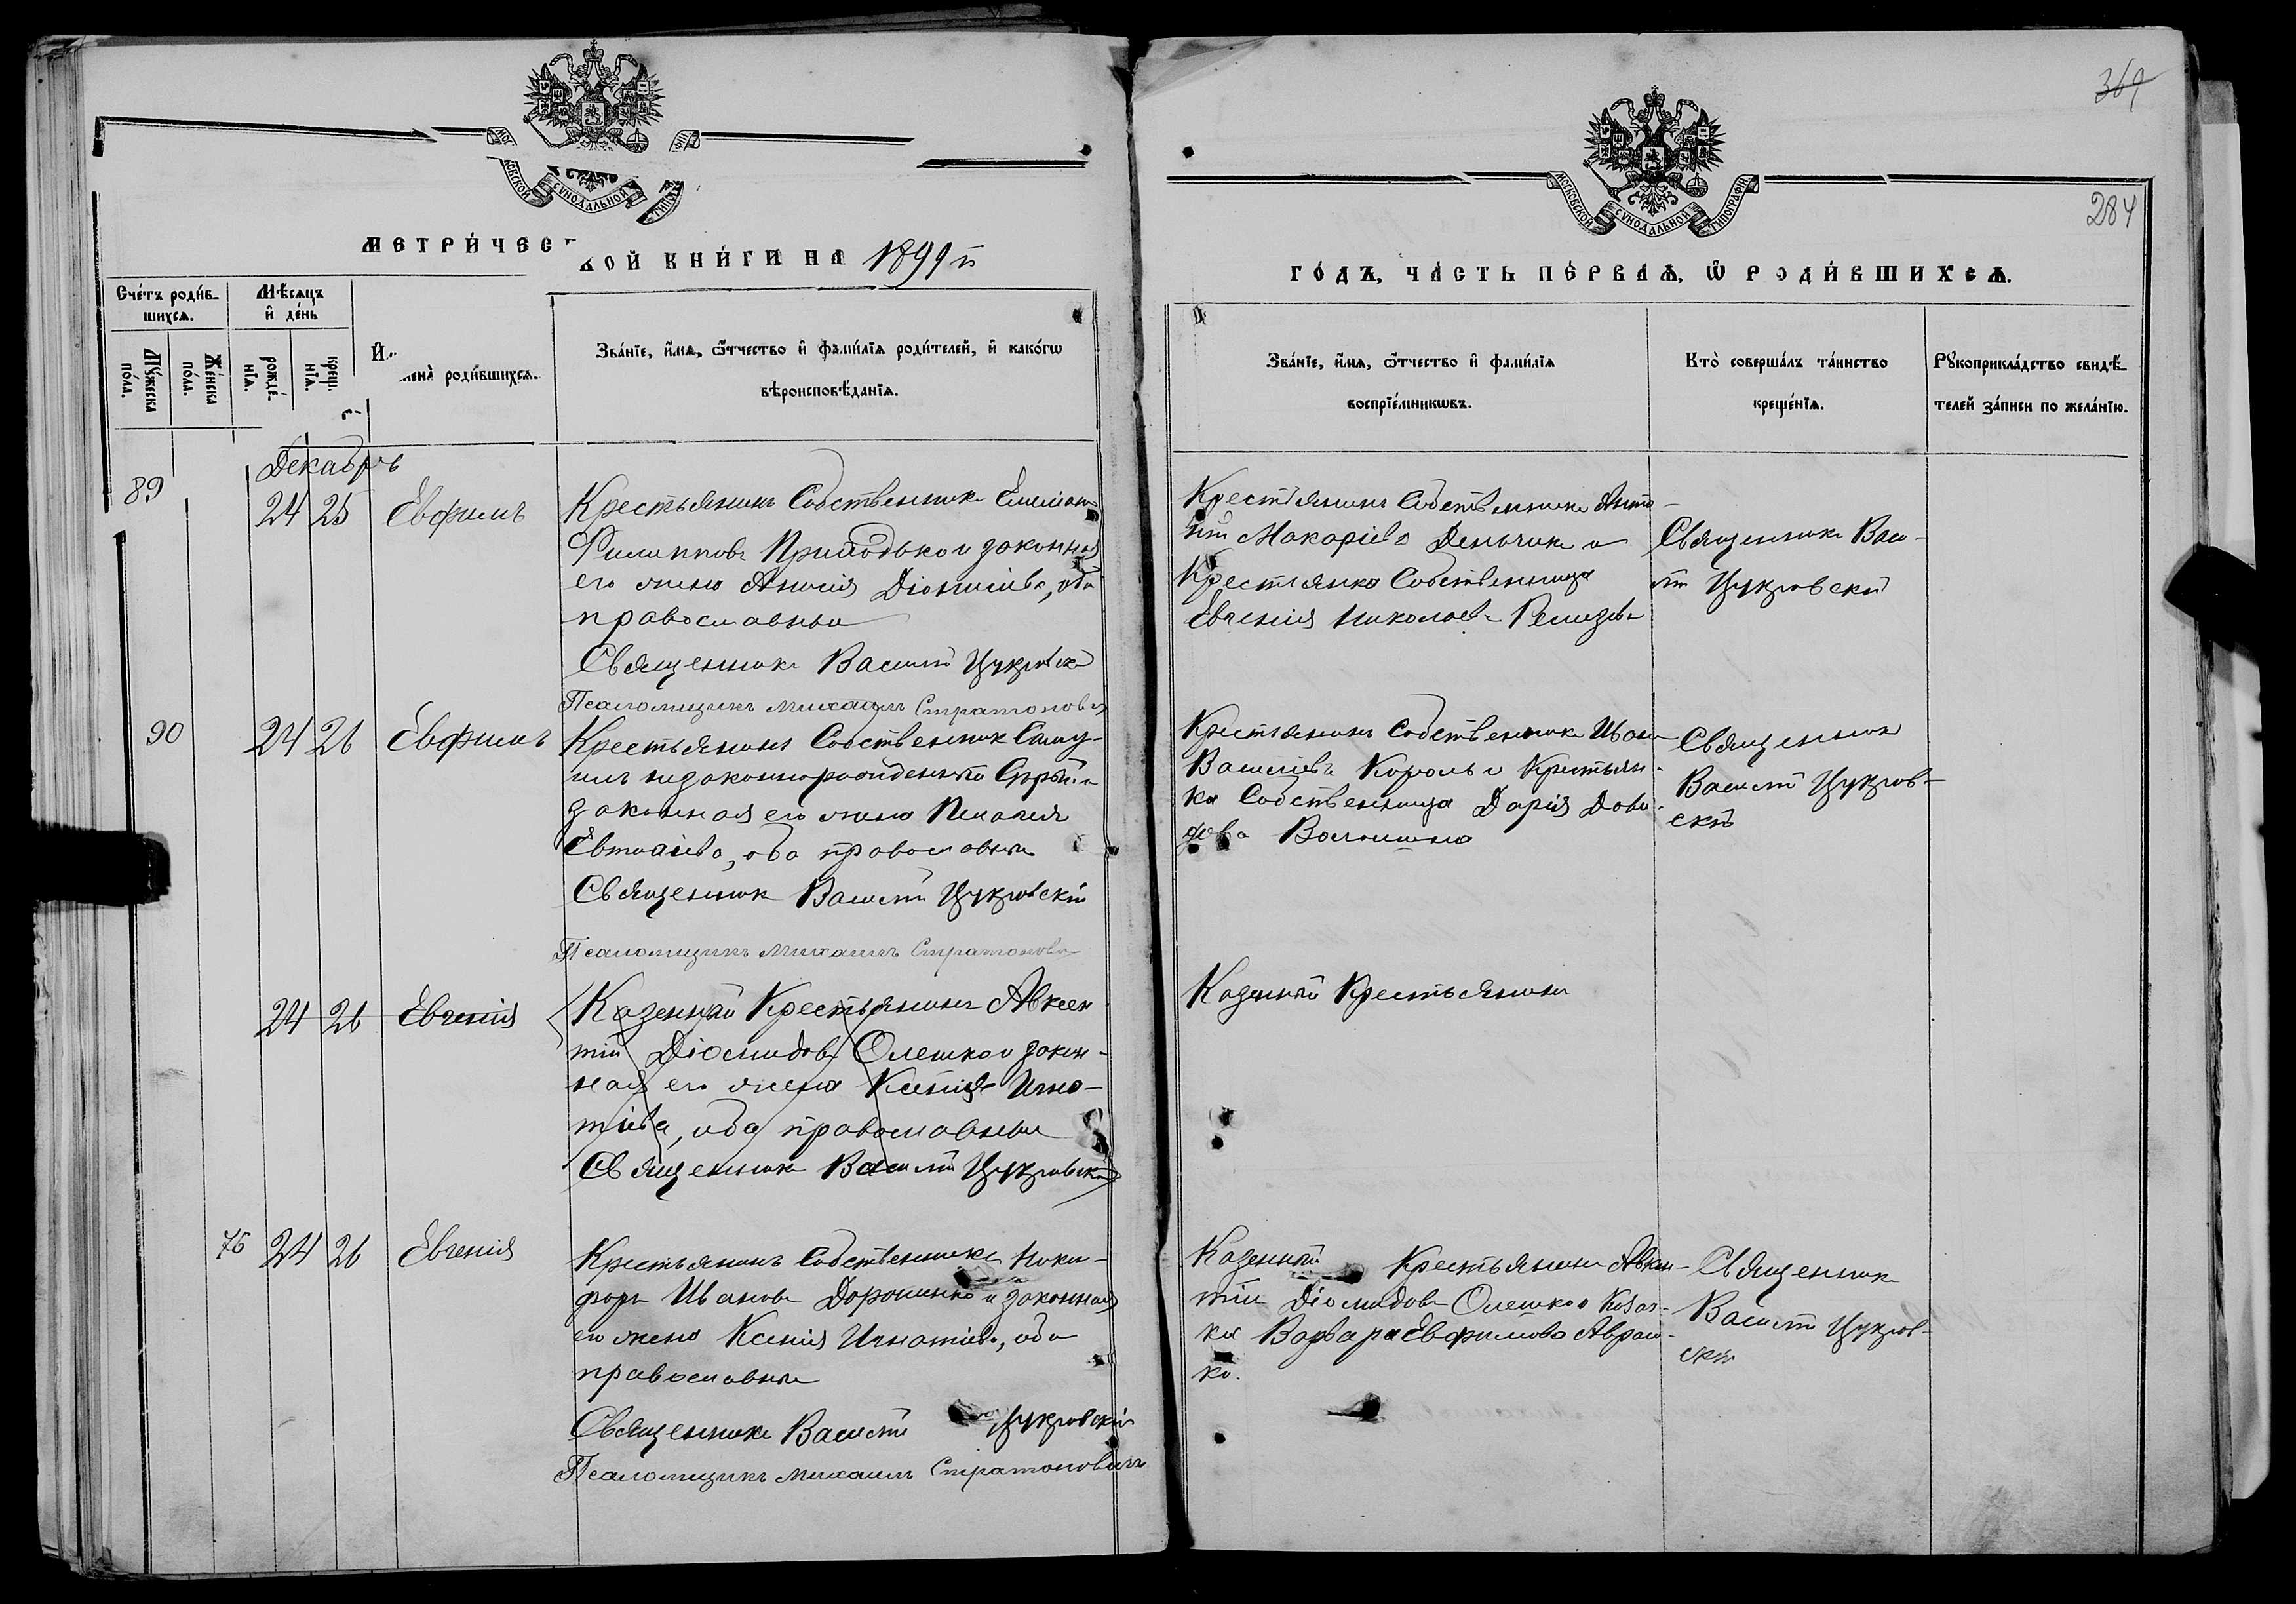 369
284
МОСКОВСКОЙ СѴНОДАЛЬНОЙ ТИПОГРАФІИ
МЕТРИЧЕС КОЙ КНИГИ НА 1899 й
ГОДЪ, ЧАСТЬ ПЕРВАЯ, Ѿ РОДИВШИХСЯ.
Счетъ родив-
шихся.
Мѣсяцъ
и день
Мужеска
пола.
Женска
пола.
рожде-
нія.
крещ.
нія.
мена родившихся.
Званіе, имя, ѿтчество и фамилія родителей, и какогѡ
вѣроисповѣданія.
Званіе, имя, ѿтчество и фамилія
воспріемникѡвъ.
Кто совершалъ таинство
крещенія.
Рꙋкоприкладство свидѣ-
телей записи по желанію.
Декабрь
89
24 25 Евфимъ
Крестьянинъ Собственникъ
Филипповъ Приходько и законная
его жена Анисія Діонисіева, оба
православные
Священникъ Василій Цукровскій
Псаломщикъ Михаилъ Стратоновъ
Крестьянинъ Собственникъ Анто-
ній Макаріевъ Деньчикъ и
Крестьянка Собственница
Евгенія Николаева
Священникъ Васи-
лій Цукровскій
90
24 26 Евфимъ
Крестьянинъ Собственникъ Саму-
илъ незаконнорожденный Сѣрый и
законная его жена Пелагія
Евтихіева, оба православные
Священникъ Василій Цукровскій
Псаломщикъ Михаилъ Стратоновъ
Крестьянинъ Собственникъ Иванъ
Василіевъ Король и Крестьян-
ка Собственница Дарія Дави-
дова Волошина
Священникъ
Василій Цукров-
скій
24 26 Евгенія
Казенный Крестьянинъ Авксен-
тій Діомидовъ Олешко и закон-
ная его жена Ксенія Игна-
тіева, оба православные
Священникъ Василій Цукровскій
Казенный Крестьянинъ
75 24 26 Евгенія
Крестьянинъ Собственникъ Ники-
форъ Ивановъ Дороненко и законная
его жена Ксенія Игнатіева, оба
православные
Священникъ Василій Цукровскій
Псаломщикъ Михаилъ Стратоновичъ
Казенный Крестьянинъ Авксен-
тій Діомидовъ Олешко и Козач-
ка Варвара Евфимова Аврам-
ко.
Священникъ
Василій Цукров-
скій